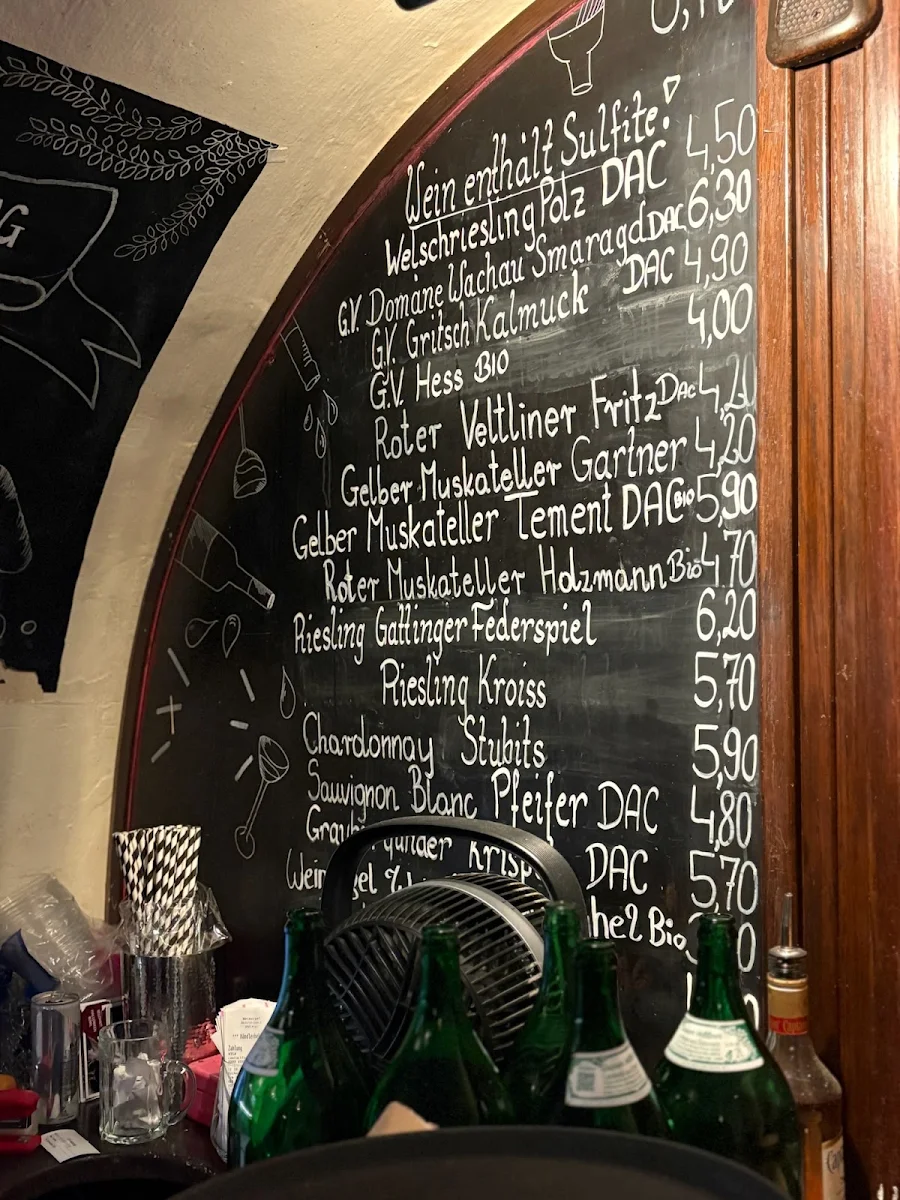 G
Wein enthält Sulfite!
Welschriesling Polz DAC 4,50
G.V. Domäne Wachau Smaragd DAC 6,30
G.V. Gritsch Kalmuck DAC 4,90
G.V. Hess BIO 4,00
Roter Veltliner Fritz Dac 4,20
Gelber Muskateller Gartner 4,20
Gelber Muskateller Tement DAC Bio 5,90
Roter Muskateller Holzmann Bio 4,70
Riesling Gattinger Federspiel 6,20
Riesling Kroiss 5,70
Chardonnay Stubits 5,90
Sauvignon Blanc Pfeifer DAC 4,80
DAC 5,70
Bio